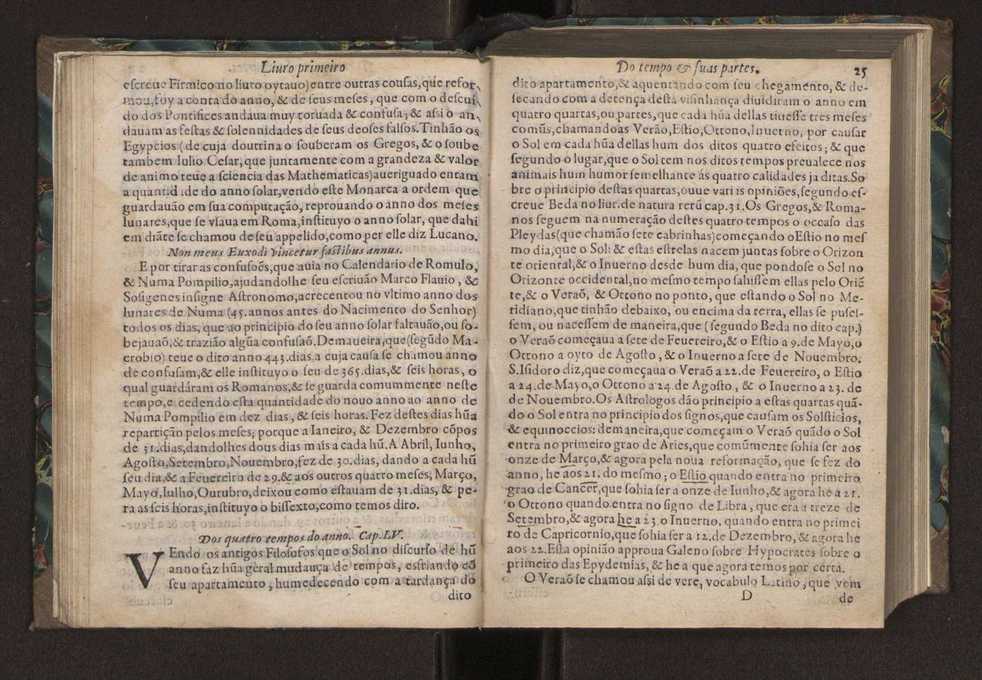 Liuro primeiro
escreue Firmico no liuro oytauo) entre outras cousas, que refor-
mou, foy a conta do anno, & de seus meses, que com o descui-
do dos Pontifices andaua muy toruada & confusa; & assi o an-
dauam as festas & solennidades de seus deoses falsos. Tinhão os
Egypcios (de cuja doutrina o souberam os Gregos, & o soube
tambem Iulio Cesar, que juntamente com a grandeza & valor
de animo teue a sciencia das Mathematicas) aueriguado entam
a quantidade do anno solar, vendo este Monarca a ordem que
guardauão em sua computação, reprouando o anno dos meses
lunares, que se vsaua em Roma, instituyo o anno solar, que dahi
em diãte se chamou de seu appelido, como per elle diz Lucano.
Non meus Euxodi vincetur fastibus annus.
E por tirar as confusoẽs, que auia no Calendario de Romulo,
& Numa Pompilio, ajudandolhe seu escriuão Marco Flauio, &
Sosigenes insigne Astronomo, acrecentou no vltimo anno dos
lunares de Numa (45. annos antes do Nacimento do Senhor)
todos os dias, que ao principio do seu anno solar faltauão, ou so-
bejauaõ, & trazião algũa confusaõ. De maueira, que (segũdo Ma-
crobio) teue o dito anno 443. dias, a cuja causa se chamou anno
de confusam, & elle instituyo o seu de 365. dias, & seis horas, o
qual guardáram os Romanos, & se guarda commummente neste
tempo, excedendo esta quantidade do nouo anno ao anno de
Numa Pompilio em dez dias, & seis horas. Fez destes dias hũa
repartição pelos meses, porque a Ianeiro, & Dezembro cõpos
de 31. dias, dandolhes dous dias mais a cada hũ. A Abril, Iunho,
Agosto, Setembro, Nouembro, fez de 30. dias, dando a cada hũ
seu dia, & a Feuereiro de 29. & aos outros quatro meses, Março,
Mayo, Iulho, Outubro, deixou como estauam de 31. dias, & pe-
ra as seis horas, instituyo o bissexto, como temos diro.
Dos quatro tempos do anno. Cap. LV.
VEndo os antigos Filosofos que o Sol no discurso de hũ
anno faz hũa geral mudança de tempos, esfriando cõ
seu apartamento, humedecendo com a tardança do
dito
Do tempo & suas partes. 25
dito apartamento, & aquentando com seu chegamento, & de-
secando com a detença desta visinhança diuidiram o anno em
quatro quartas, ou partes, que cada hũa dellas tiuesse tres meses
comũs, chamandoas Verão, Estio, Ottono, Inuerno, por causar
o Sol em cada hũa dellas hum dos ditos quatro efeitos; & que
segundo o lugar, que o Sol tem nos ditos tempos preualece nos
animais hum humor semelhante ás quatro calidades ja ditas. So
bre o principio destas quartas, ouue varias opiniões, segundo es-
creue Beda no liur. de natura rerũ cap. 31. Os Gregos, & Roma-
nos seguem na numeração destes quatro tempos o occaso das
Pleydas (que chamão sete cabrinhas) começando o Estio no mes
mo dia, que o Sol: & estas estrelas nacem juntas sobre o Orizon
te oriental, & o Inuerno desde hum dia, que pondose o Sol no
Orizonte occidental, no mesmo tempo sahissem ellas pelo Oriẽ
te, & o Veraõ, & Ottono no ponto, que estando o Sol no Me-
ridiano, que tinhão debaixo, ou encima da terra, ellas se pusel-
sem, ou nacessem de maneira, que (segundo Beda no dito cap.)
o Veraõ começaua a sete de Feuereiro, & o Estio a 9. de Mayo, o
Ottono a oyto de Agosto, & o Inuerno a sete de Nouembro.
S. Isidoro diz, que começaua o Veraõ a 22. de Feuereiro, o Estio
a 24. de Mayo, o Ottono a 24. de Agosto, & o Inuerno a 23. de
de Nouembro. Os Astrologos dão principio a estas quartas quã-
do o Sol entra no principio dos signos, que causam os Solsticios,
& equinoccios: de maneira, que começam o Veraõ quãdo o Sol
entra no primeiro grao de Aries, que comũmente sohia ser aos
onze de Março, & agora pela noua reformação, que se fez do
anno, he aos 21. do mesmo; o Estio quando entra no primeiro
grao de Cancer, que sohia ser a onze de Iunho, & agora he a 21.
o Ottono quando entra no signo de Libra, que era a treze de
Setembro, & agora he a 23. o Inuerno, quando entra no primei
ro de Capricornio, que sohia ser a 12. de Dezembro, & agora he
aos 22. Esta opinião approua Galeno sobre Hypocrates sobre o
primeiro das Epydemias, & he a que agora temos por certa.
O Veraõ se chamou assi de vere, vocabulo Latino, que vem
D de